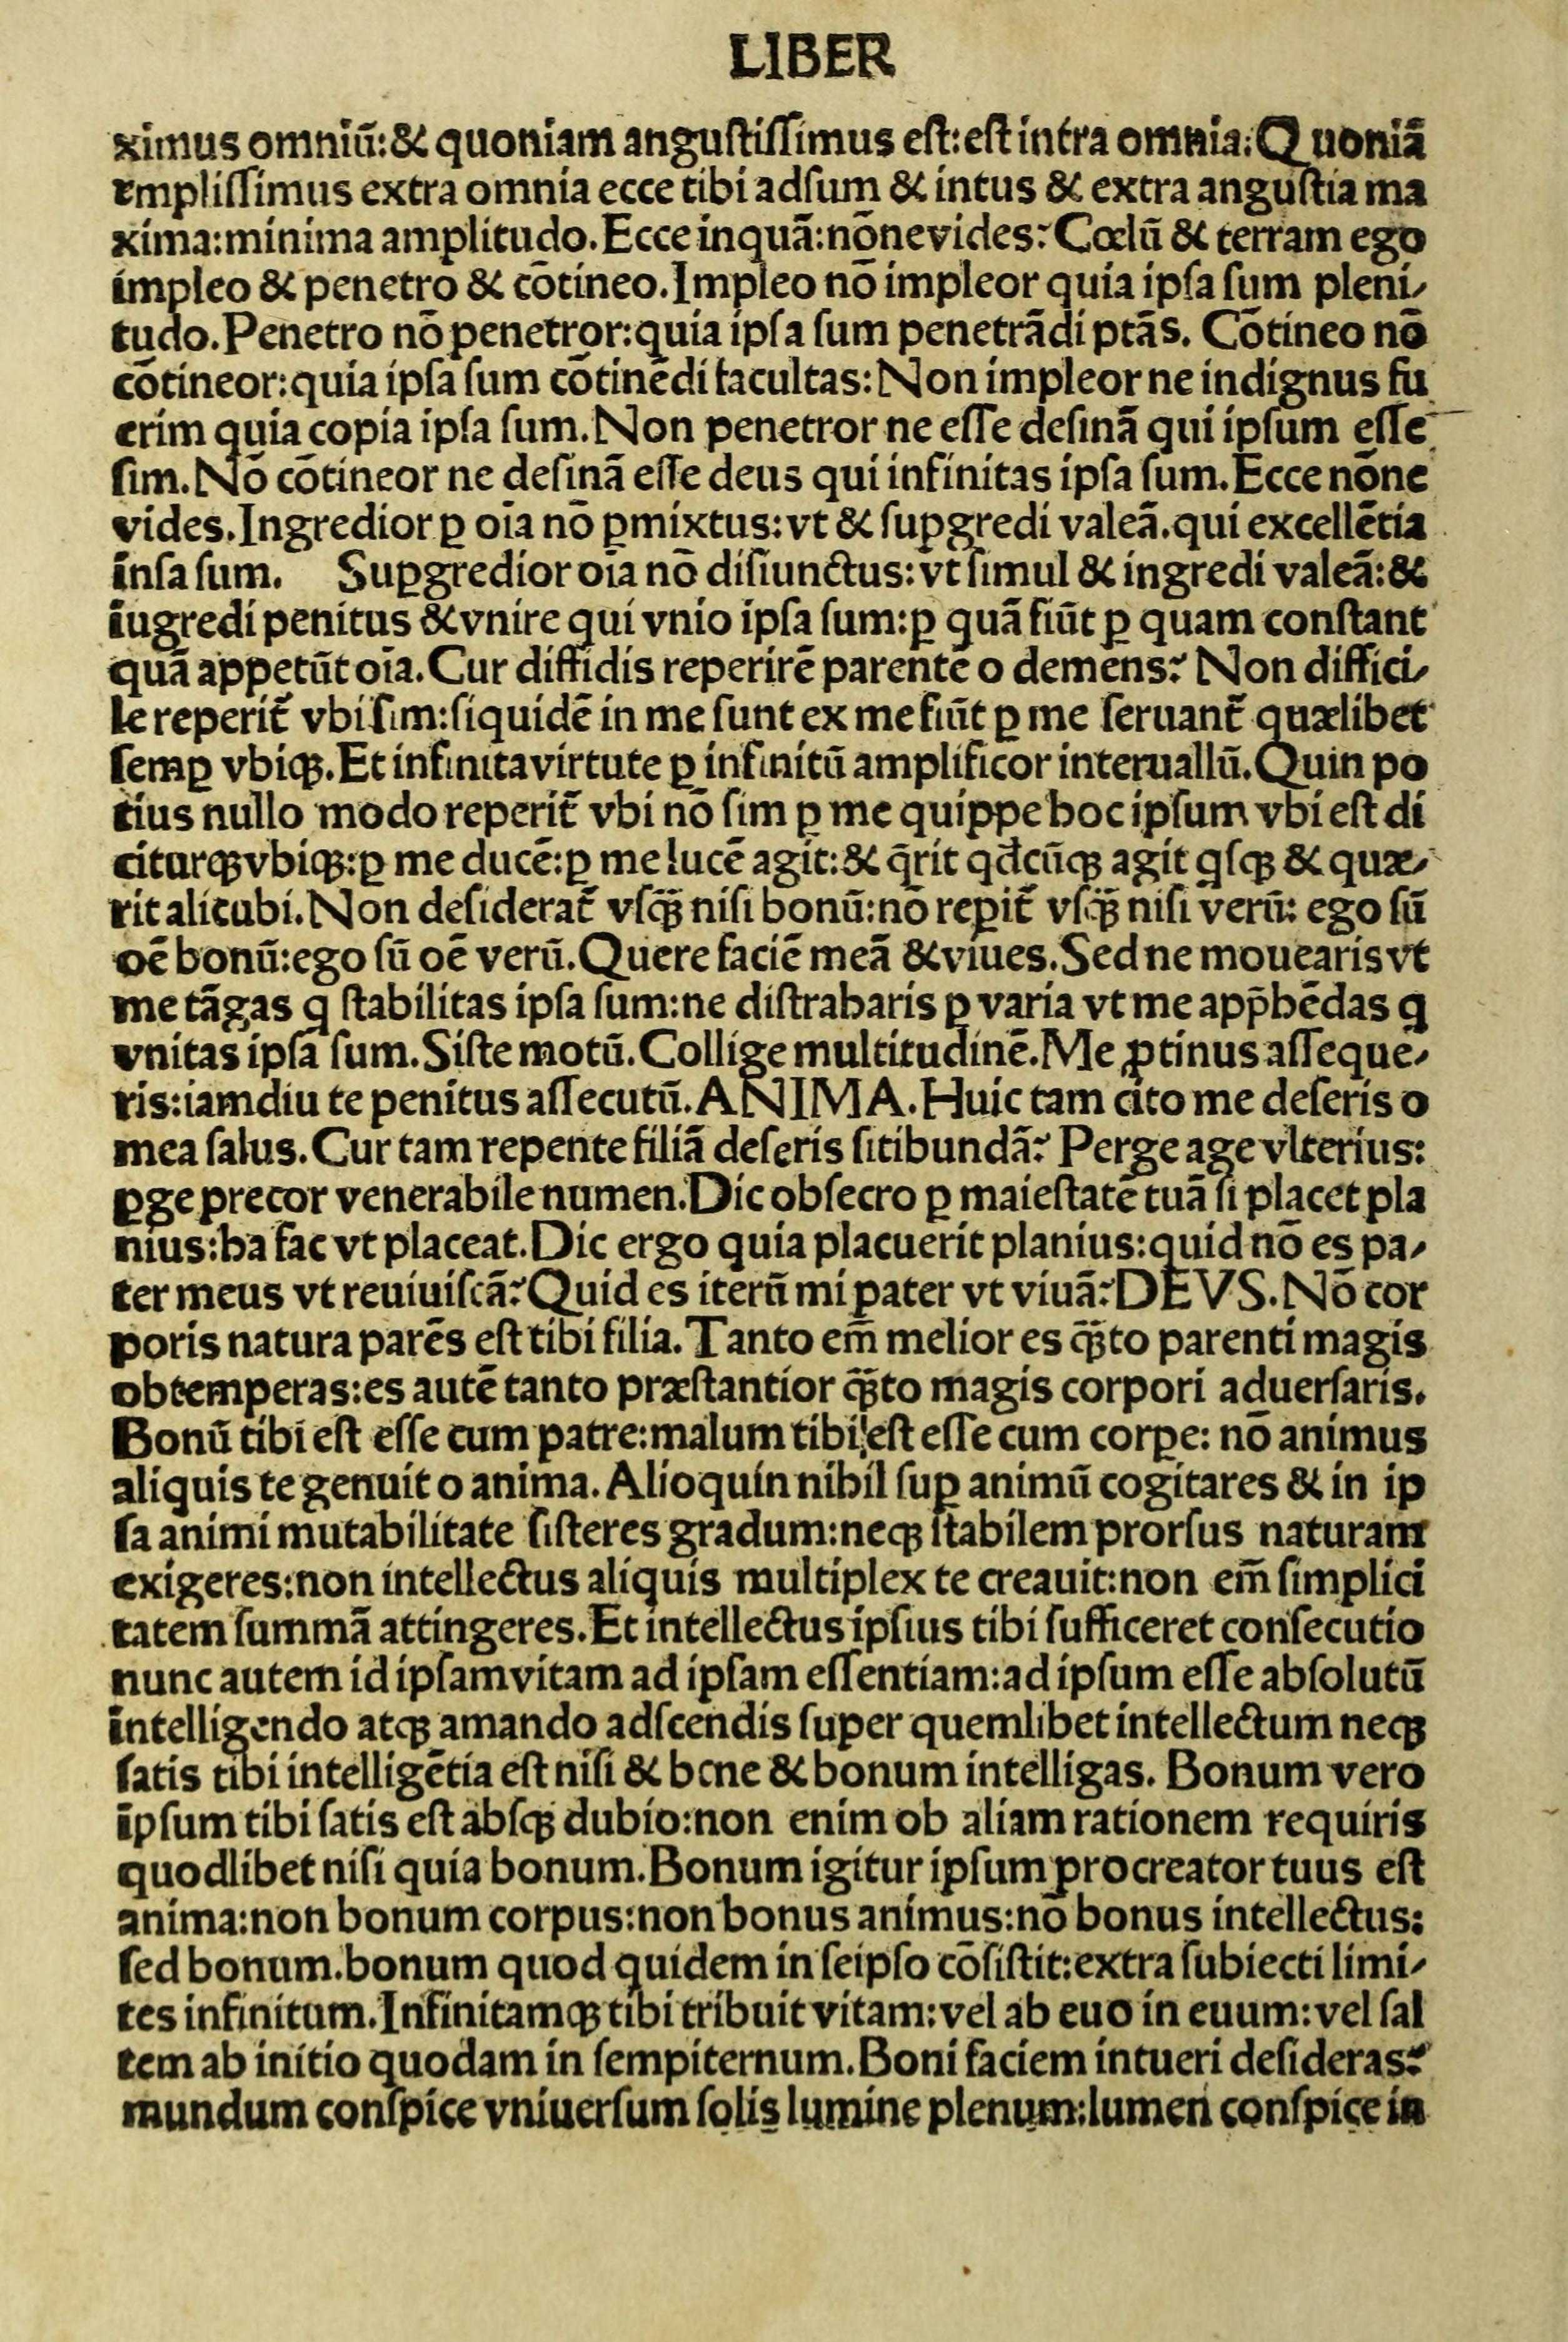 LIBER
ximus omniũ:& quoniam anguſtiſſimus eſt:eſt intra omnia:Quoniã
empliſſimus extra omnia ecce tibi adſum & intus & extra anguſtia ma
xima:minima amplitudo.Ecce inquã:nõne vides? Cœlũ & terram ego
impleo & penetro & cõtineo.Impleo nõ impleor quia ipſa ſum pleni⸗
tudo.Penetro nõ penetror:quia ipſa ſum penetrãdi ptãs. Cõtineo nõ
cõtineor:quia ipſa ſum cõtinẽdi facultas:Non impleor ne indignus fu
erim quia copia ipſa ſum.Non penetror ne eſſe deſinã qui ipſum eſſe
ſim.Nõ cõtineor ne deſinã eſſe deus qui infinitas ipſa ſum.Ecce nõne
vides.Ingredior ꝑ oĩa nõ ꝑmixtus:vt & ſuꝑgredi valeã.qui excellẽtia
inſa ſum. Suꝑgredior oĩa nõ diſiunctus:vt ſimul & ingredi valeã:&
iugredi penitus & vnire qui vnio ipſa ſum:ꝑ quã fiũt ꝑ quam conſtant
quã appetũt oĩa.Cur diffidis reperirẽ parentẽ o demens? Non diffici⸗
le reperit̃ vbi ſim:ſiquidẽ in me ſunt ex me fiũt ꝑ me ſeruant̃ quælibet
ſemꝑ vbiqꝫ.Et infinita virtute ꝑ infinitũ amplificor interuallũ.Quin po
tius nullo modo reperit̃ vbi nõ ſim ꝑ me quippe boc ipſum vbi eſt di
citurqꝫ vbiqꝫ:ꝑ me ducẽ:ꝑ me lucẽ agit:& q̃rit qd̃cũqꝫ agit qſqꝫ & quæ⸗
rit alicubi.Non deſiderat̃ vſq̃ꝫ niſi bonũ:nõ reꝑit̃ vſq̃ꝫ niſi verũ: ego ſũ
oẽ bonũ:ego ſũ oẽ verũ.Quere faciẽ meã & viues.Sed ne mouearis vt
me tãgas q ſtabilitas ipſa ſum:ne diſtrabaris ꝑ varia vt me app̃bẽdas q
vnitas ipſa ſum.Siſte motũ.Collige multitudinẽ.Me ꝓtinus aſſeque⸗
ris:iamdiu te penitus aſſecutũ.ANIMA.Huic tam cito me deſeris o
mea ſalus.Cur tam repente filiã deſeris ſitibundã? Perge age vlterius:
ꝑge precor venerabile numen.Dic obſecro ꝑ maieſtatẽ tuã ſi placet pla
nius:ba fac vt placeat.Dic ergo quia placuerit planius:quid nõ es pa⸗
ter meus vt reuiuiſcã?Quid es iterũ mi pater vt viuã?DEVS.Nõ cor
poris natura parẽs eſt tibi filia.Tanto em̃ melior es q̃ꝫto parenti magis
obtemperas:es autẽ tanto præſtantior q̃ꝫto magis corpori aduerſaris.
Bonũ tibi eſt eſſe cum patre:malum tibi eſt eſſe cum corꝑe: nõ animus
aliquis te genuit o anima.Alioquin nibil ſuꝑ animũ cogitares & in ip
ſa animi mutabilitate ſiſteres gradum:neqꝫ ſtabilem prorſus naturam
exigeres:non intellectus aliquis multiplex te creauit:non em̃ ſimplici
tatem ſummã attingeres.Et intellectus ipſius tibi ſufficeret conſecutio
nunc autem id ipſam vitam ad ipſam eſſentiam:ad ipſum eſſe abſolutũ
intelligendo atqꝫ amando adſcendis ſuper quemlibet intellectum neqꝫ
ſatis tibi intelligẽtia eſt niſi & bene & bonum intelligas. Bonum vero
ipſum tibi ſatis eſt abſqꝫ dubio:non enim ob aliam rationem requiris
quodlibet niſi quia bonum.Bonum igitur ipſum procreator tuus eſt
anima:non bonum corpus:non bonus animus:nõ bonus intellectus:
ſed bonum.bonum quod quidem in ſeipſo cõſiſtit:extra ſubiecti limi⸗
tes infinitum.Infinitamqꝫ tibi tribuit vitam:vel ab euo in euum:vel ſal
tem ab initio quodam in ſempiternum.Boni faciem intueri deſideras?
mundum conſpice vniuerſum ſolis lumine plenum:lumen conſpice in